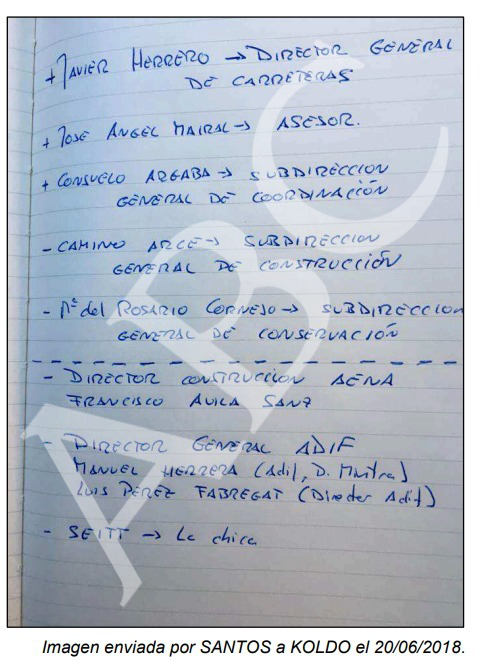 + JAVIER HERRERO → DIRECTOR GENERAL
DE CARRETERAS
+ JOSE ANGEL MAIRAL → ASESOR.
+ CONSUELO ARGABA → SUBDIRECCION
GENERAL DE COORDINACIÓN
- CAMINO ARCE → SUBDIRECCION
GENERAL DE CONSTRUCCIÓN
- Mª del ROSARIO CORNEJO → SUBDIRECCION
GENERAL DE CONSERVACIÓN
- DIRECTOR CONSTRUCCION AENA
FRANCISCO AVILA SANZ
- DIRECTOR GENERAL ADIF
MANUEL HERRERA (Adif, D.
LUIS PÉREZ FABREGAT (Director Adif)
- SEITT → La chica
ABC
Imagen enviada por SANTOS a KOLDO el 20/06/2018.